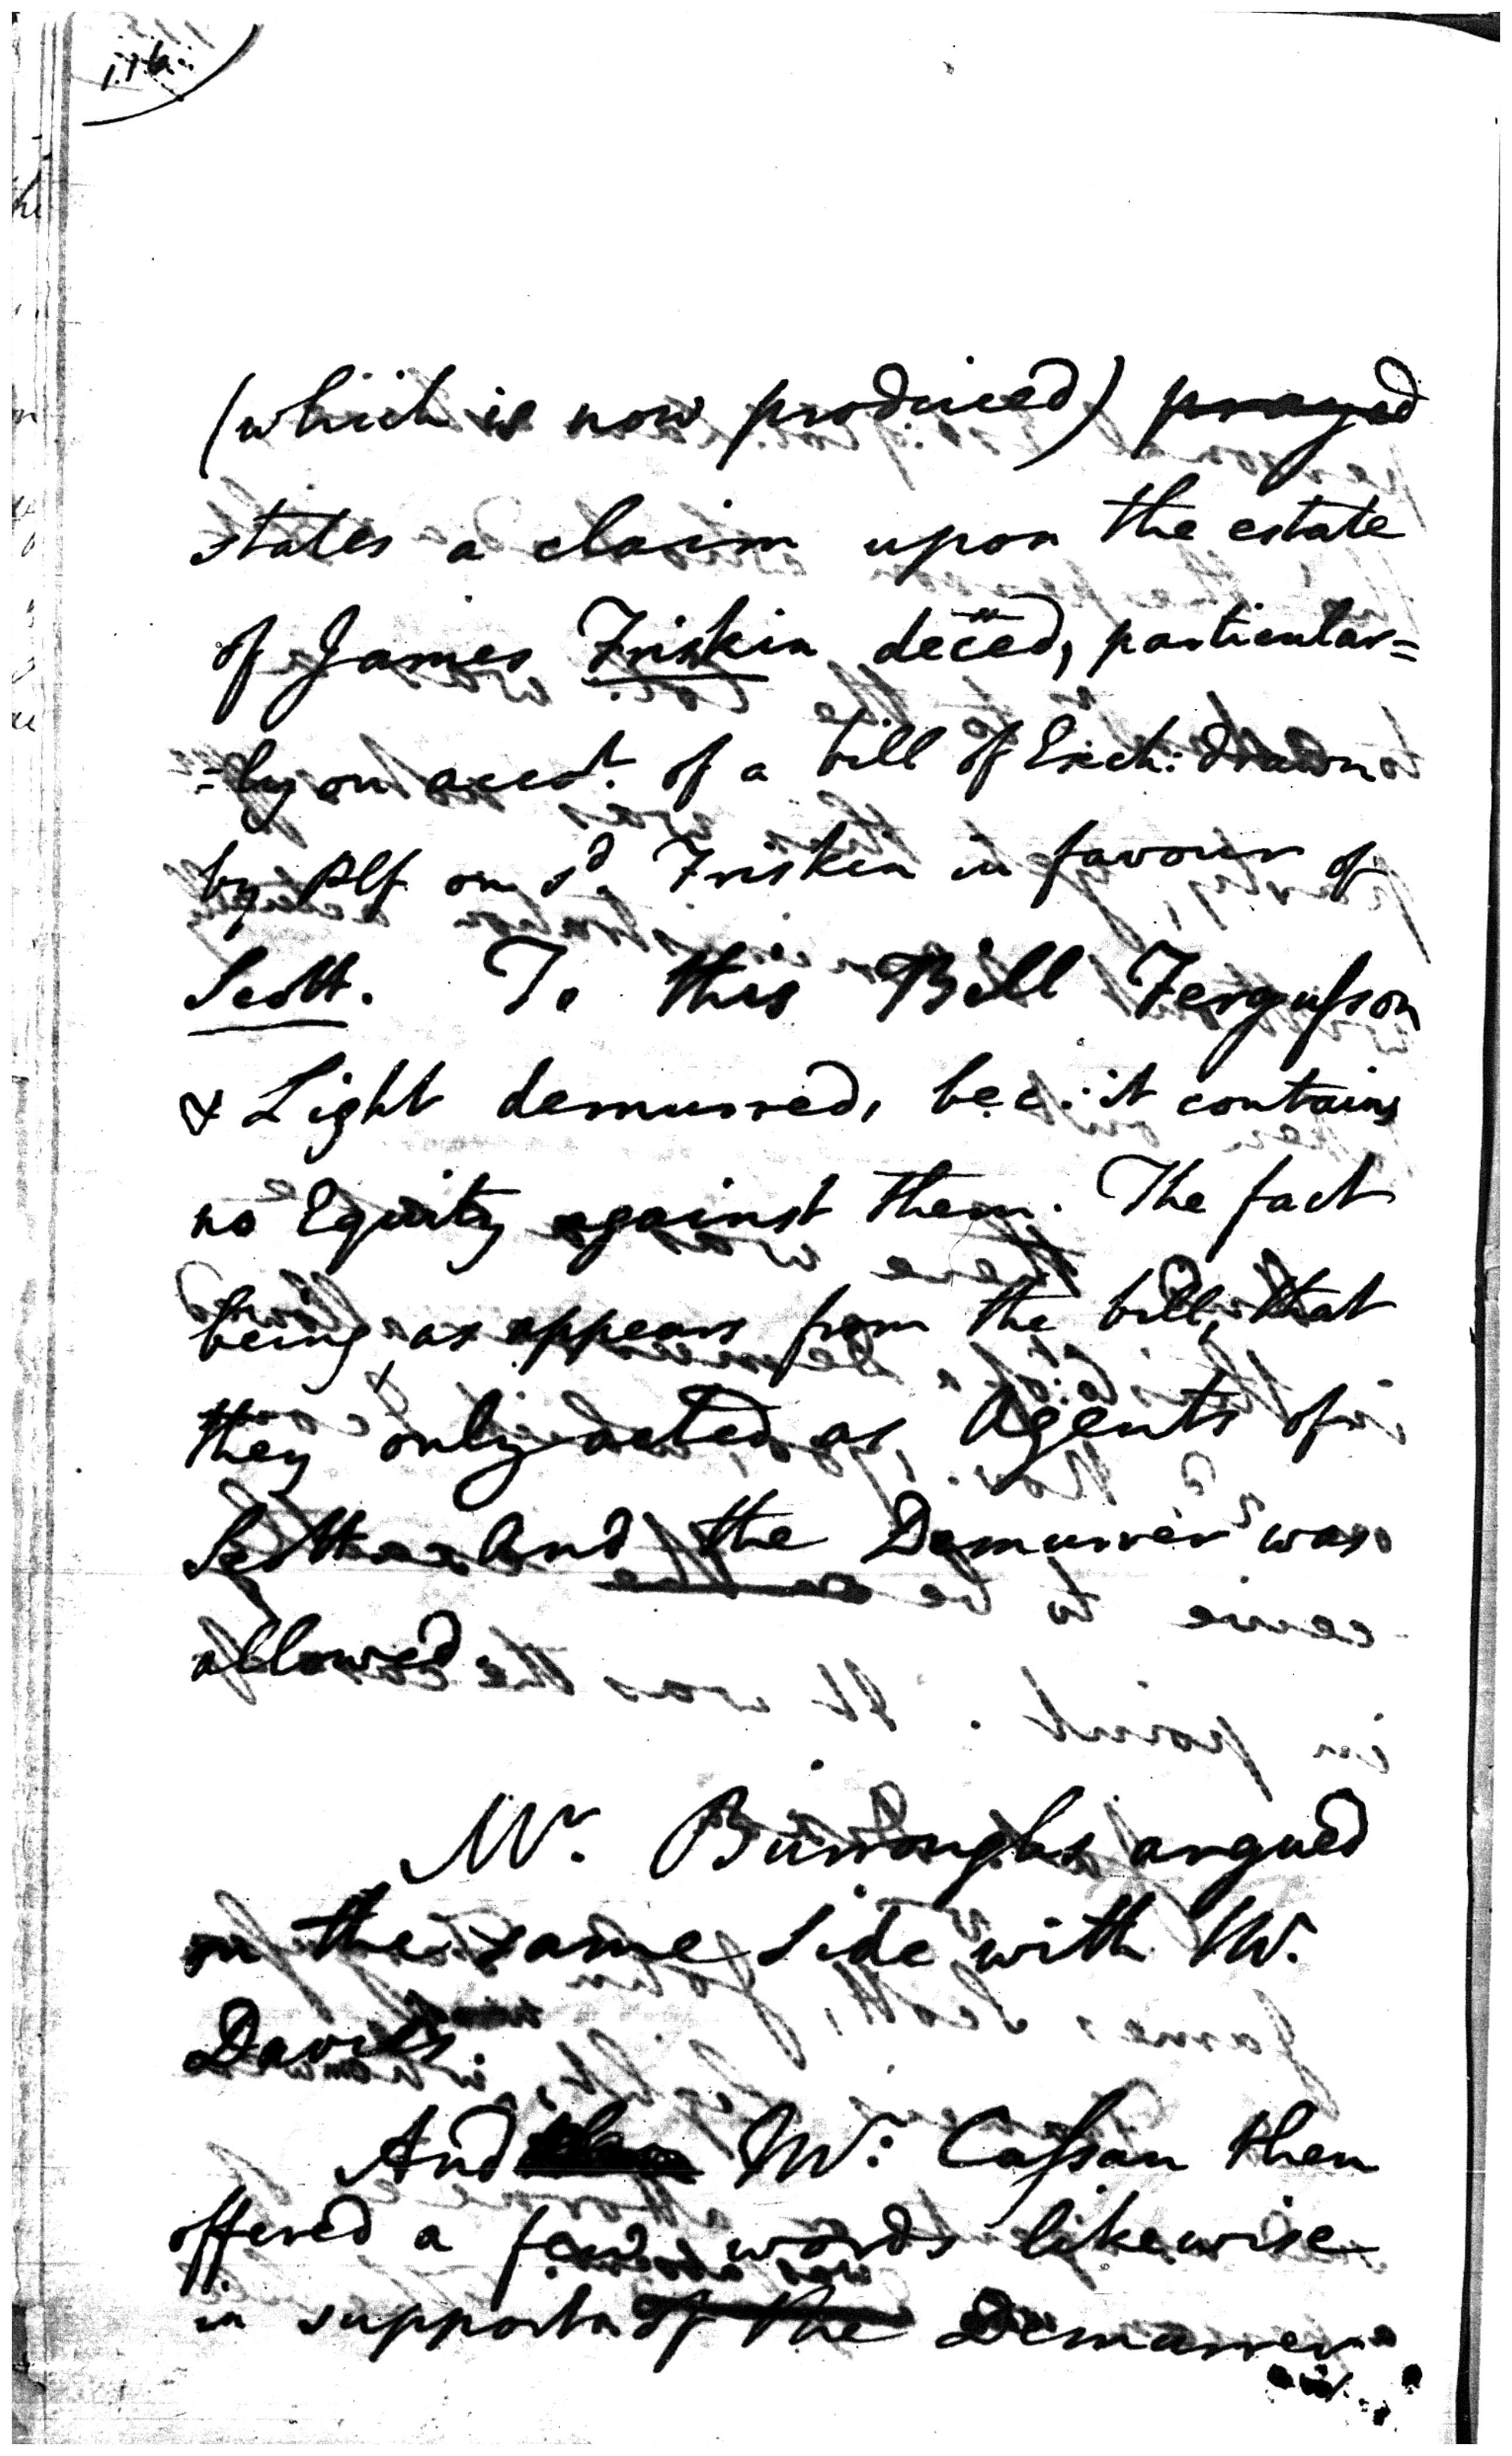 116.
(which is now produced) prayed
states a claim upon the estate
of James Friskin deced, particular=
=ly on acct. of a bill of Exch: drawn
by Plf on sd. Friskin in favour of
Scott. To this Bill Fergusson
& Light demurred, bec: it contains
no Equity against them. The fact
being as appears from the bill, that
they only acted as Agents of
Scott And the Demurrer was
allowed
Mr. Burroughs argued
on the same side with Mr.
Davies
And Mr. Cassan then
offered a few words likewise
in support of the Demurrer